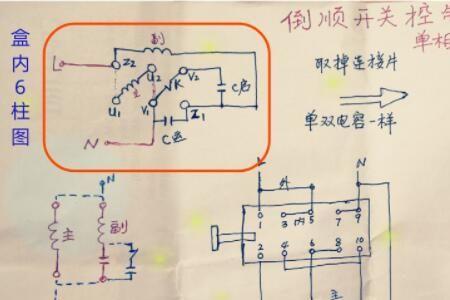 盒内6柱图
倒顺开关控
单相
取掉连接片
单双电容一样
副
L
Z2
U2
V2
主
K
C启
U1
V1
Z1
N
C运
N
主
副
L
N
外
1 3 内 5 7 9
2 4 6 8 10
主